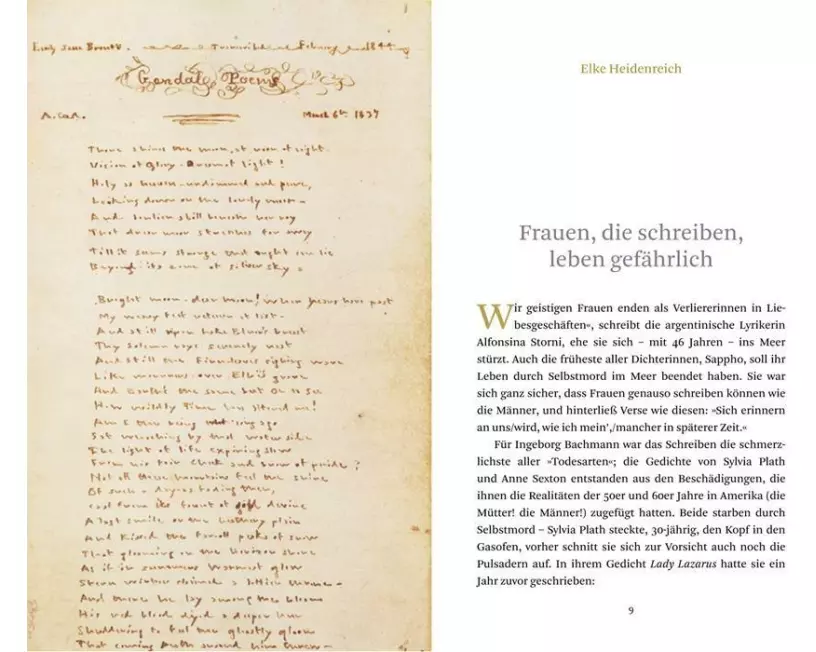 Emily Jane Brontë. Transcribed February 1844
Gondal Poems
A. G. A. March 6th 1837
There shines the moon, at noon of night-
Vision of Glory - Dream of light!
Holy as heaven - undimmed and pure,
Looking down on the lonely moor -
And lonelier still beneath her ray
That drear moor stretches far away
Till it seems strange that aught can lie
Beyond its zone of silver sky -
Bright moon - dear moon! when years have past
My weary feet return at last -
And still upon Lake Elnor's breast
Thy solemn rays serenely rest
And still the Fernleaves sighing wave
Like mourners over Elbë's grave
And Earth's the same but Oh to see
How wildly Time has altered me!
Am I the being who long ago
Sat watching by that water side
The light of life expiring slow
From his fair cheek and brow of pride?
Not oft these mountains feel the shine
Of such a day - as fading then,
Cast from its fount of gold divine
A last smile on the heathery plain
And kissed the far-off peaks of snow
That gleaming on the horizon shone
As if in summer's warmest glow
Stern winter claimed a loftier throne -
And there he lay among the bloom
His red blood dyed a deeper hue
Shuddering to feel the ghostly gloom
That coming Death around him threw -
Elke Heidenreich
Frauen, die schreiben,
leben gefährlich
Wir geistigen Frauen enden als Verliererinnen in Lie-
besgeschäften«, schreibt die argentinische Lyrikerin
Alfonsina Storni, ehe sie sich – mit 46 Jahren – ins Meer
stürzt. Auch die früheste aller Dichterinnen, Sappho, soll ihr
Leben durch Selbstmord im Meer beendet haben. Sie war
sich ganz sicher, dass Frauen genauso schreiben können wie
die Männer, und hinterließ Verse wie diesen: »Sich erinnern
an uns/wird, wie ich mein',/mancher in späterer Zeit.«
Für Ingeborg Bachmann war das Schreiben die schmerz-
lichste aller »Todesarten«; die Gedichte von Sylvia Plath
und Anne Sexton entstanden aus den Beschädigungen, die
ihnen die Realitäten der 50er und 60er Jahre in Amerika (die
Mütter! die Männer!) zugefügt hatten. Beide starben durch
Selbstmord – Sylvia Plath steckte, 30-jährig, den Kopf in den
Gasofen, vorher schnitt sie sich zur Vorsicht auch noch die
Pulsadern auf. In ihrem Gedicht Lady Lazarus hatte sie ein
Jahr zuvor geschrieben:
9